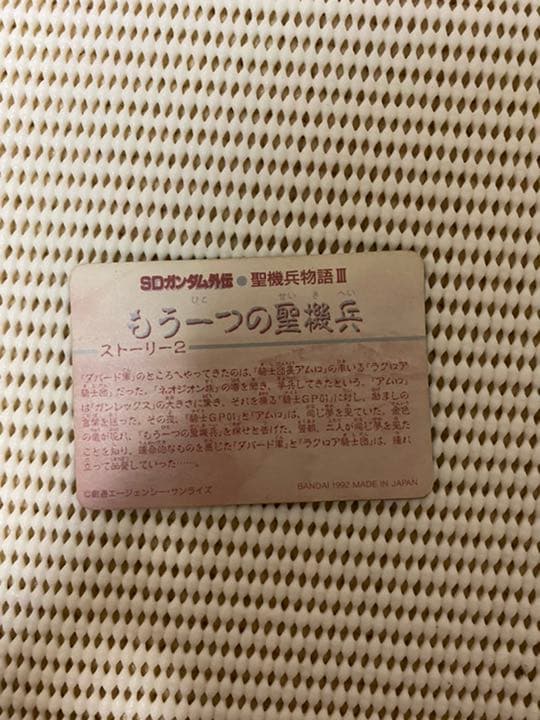 SDガンダム外伝●聖機兵物語Ⅲ
もう一つの聖機兵
ストーリー2
「ダバード軍」のところへやってきたのは、「騎士団長アムロ」の率いる「ラクロア
騎士団」だった。「ネオジオン族」の噂を聞き、挙兵してきたという。「アムロ」
は「ガンレックス」の大きさに驚き、それを操る「騎士GP01」に対し、励ましの
言葉を送った。その夜、「騎士GP01」と「アムロ」は、同じ夢を見ていた。金色
の竜が現れ、「もう一つの聖機兵」を探せと告げた。翌朝、二人が同じ夢を見た
ことを知り、運命的なものを感じた「ダバード軍」と「ラクロア騎士団」は、連れ
立って出発していった……。
©創通エージェンシー・サンライズ
BANDAI 1992 MADE IN JAPAN